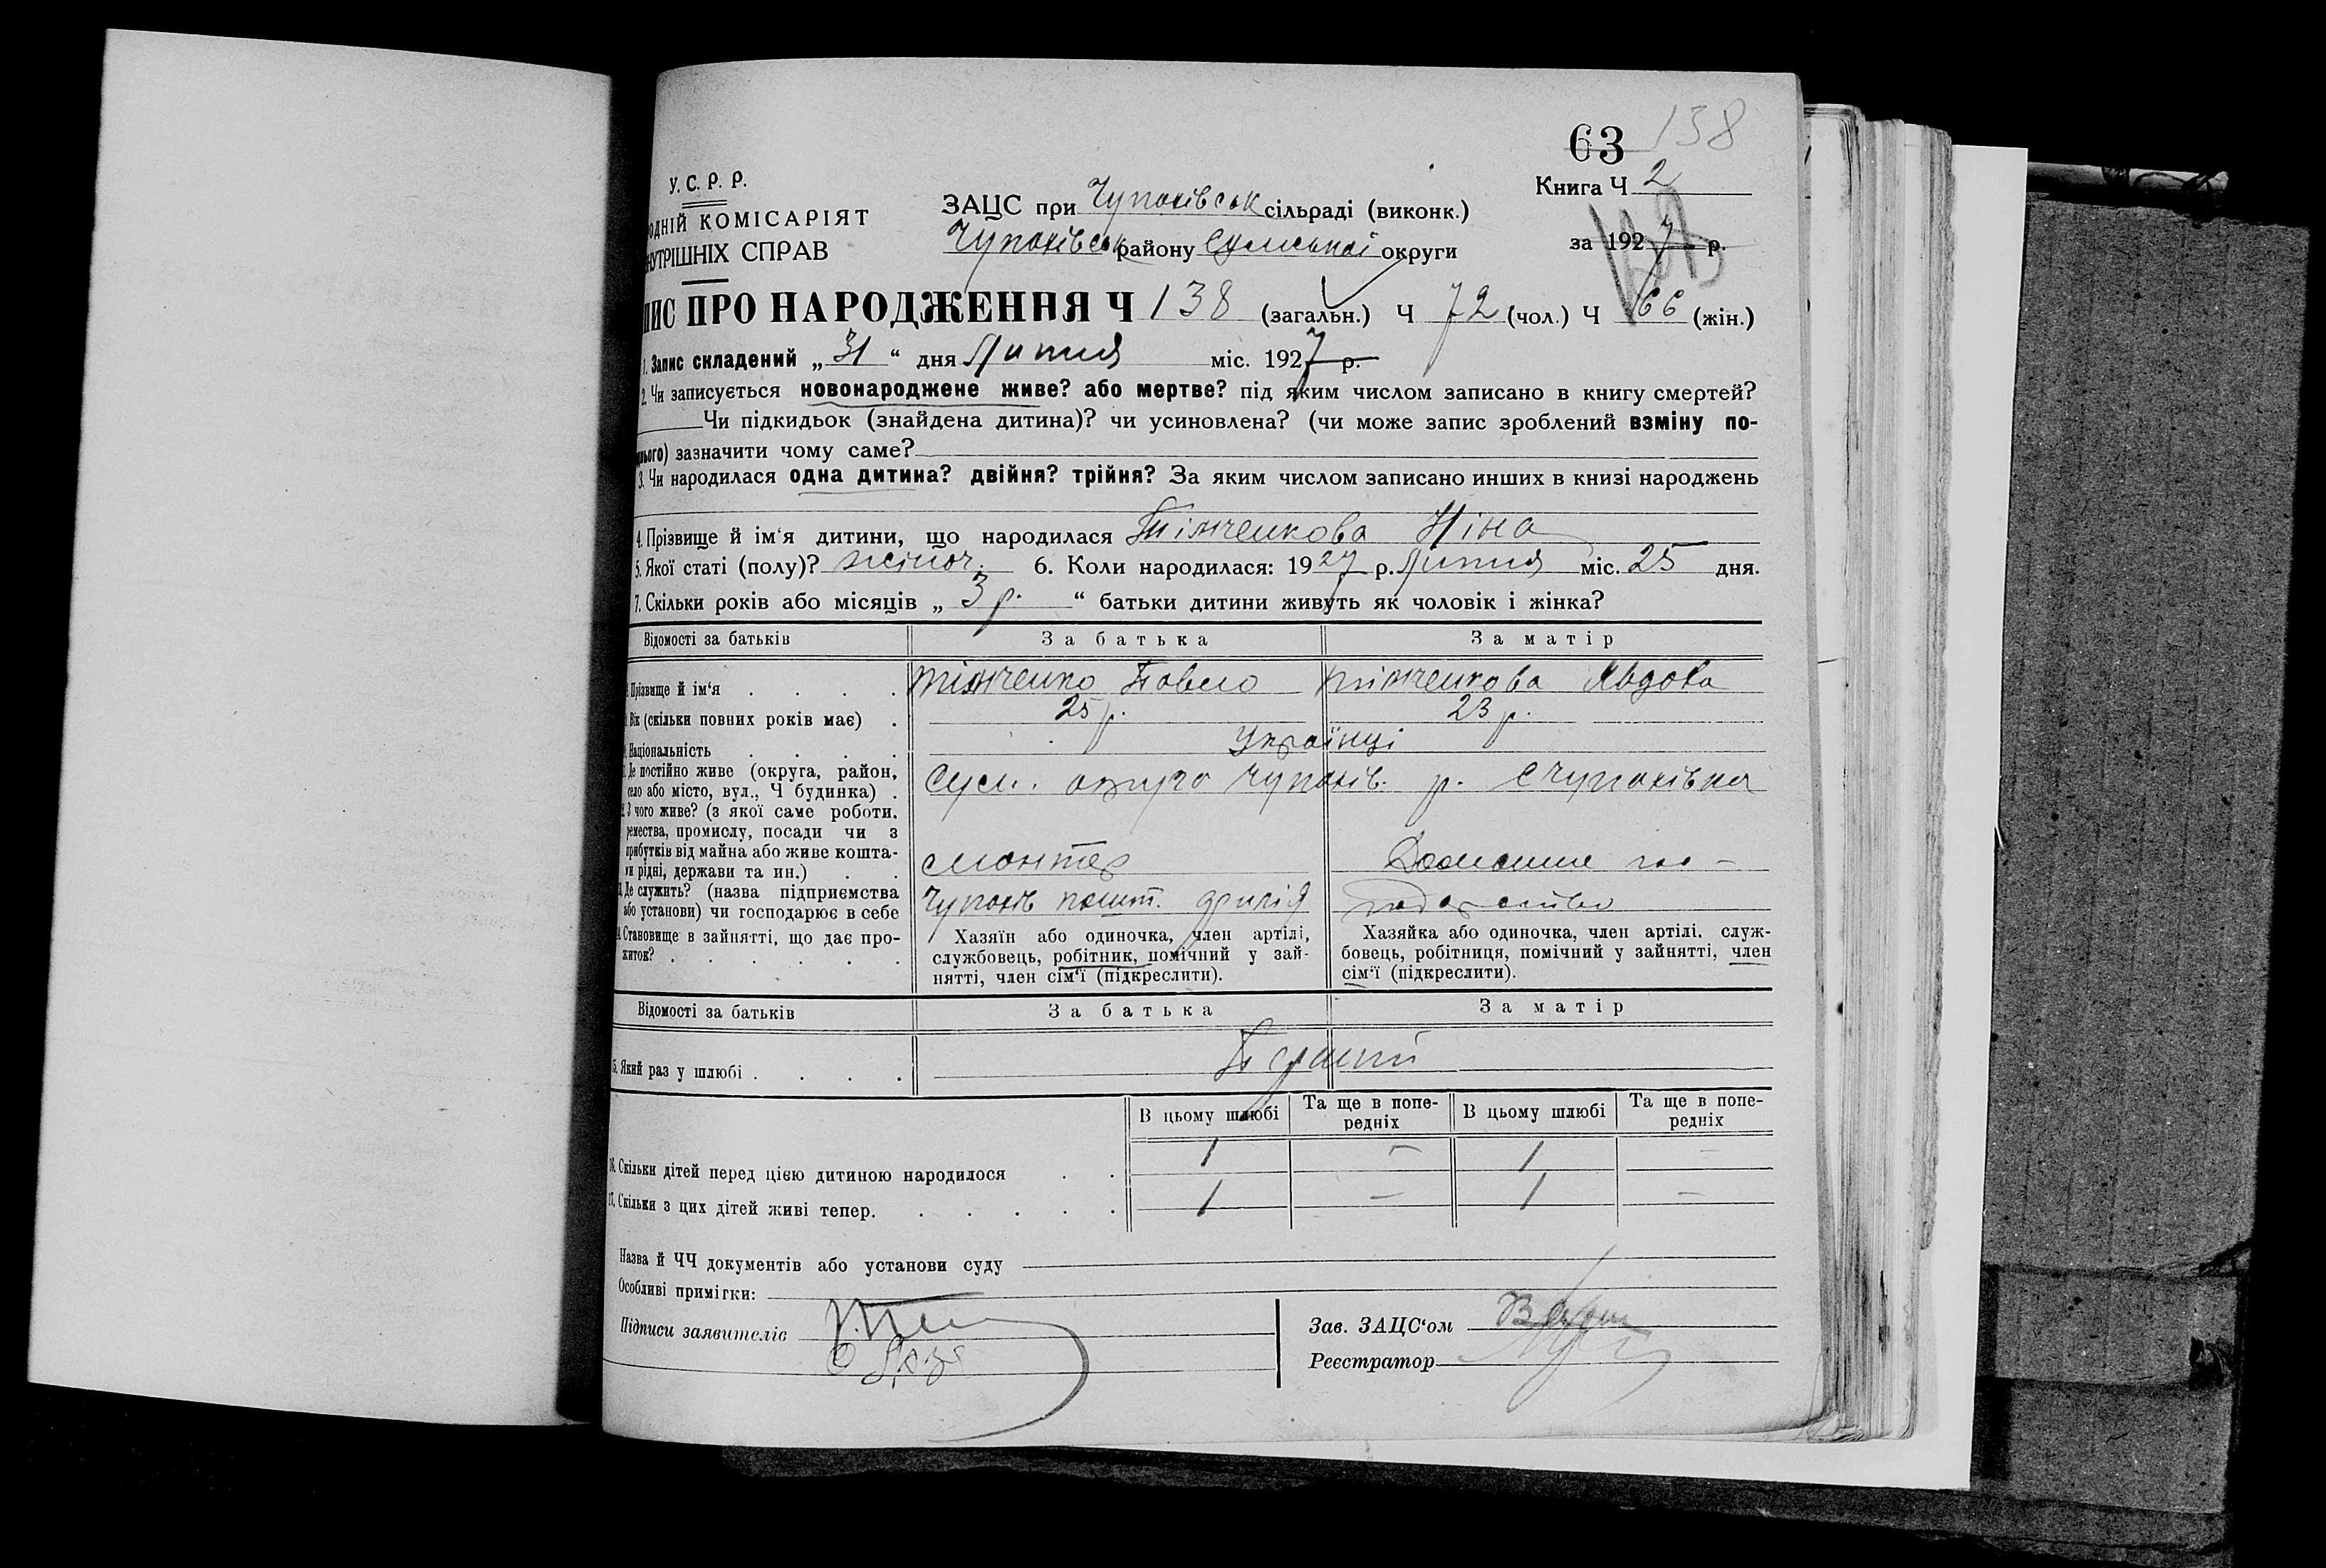 63 138
У. С. Р. Р.
Книга Ч 2
ОДНІЙ КОМІСАРІЯТ
НУТРІШНІХ СПРАВ
ЗАЦС при Чупахівськ сільраді (виконк.)
Чупахівськ району Сумської округи
за 1927 р.
ПИС ПРО НАРОДЖЕННЯ Ч 138 (загальн.) Ч 72 (чол.) Ч 66 (жін.)
1. Запис складений „31“ дня Липня міс. 1927 р.
2. Чи записується новонароджене живе? або мертве? під яким числом записано в книгу смертей?
Чи підкидьок (знайдена дитина)? чи усиновлена? (чи може запис зроблений взміну по-
нього) зазначити чому саме?
3. Чи народилася одна дитина? двійня? трійня? За яким числом записано инших в книзі народжень
4. Прізвище й ім‘я дитини, що народилася Тімченкова Ніна
5. Якої статі (полу)? жіноч. 6. Коли народилася: 1927 р. Липня міс. 25 дня.
7. Скільки років або місяців „3 р.“ батьки дитини живуть як чоловік і жінка?
Відомості за батьків За батька За матір
Прізвище й ім‘я . . . . Тімченко Павло Тімченкова Явдоха
Вік (скільки повних років має) . 25 р. 23 р.
Національність . . . . Українці
Де постійно живе (округа, район,
село або місто, вул., Ч будинка) . Сум. округа Чупахів. р. с Чупахівка
З чого живе? (з якої саме роботи,
ремества, промислу, посади чи з
прибутків від майна або живе кошта-
ми рідні, держави та ин.) . . монтер Домашнє гос-
Де служить? (назва підприємства
або установи) чи господарює в себе Чупахів пошт. подарство
Становище в зайнятті, що дає про-
житок? . . . . . .
Хазяїн або одиночка, член артілі,
службовець, робітник, помічний у зай-
нятті, член сім‘ї (підкреслити).
Хазяйка або одиночка, член артілі, служ-
бовець, робітниця, помічний у зайнятті, член
сім‘ї (підкреслити).
Відомості за батьків За батька За матір
15. Який раз у шлюбі . . . . Перший
В цьому шлюбі Та ще в попе-редніх В цьому шлюбі Та ще в попе-редніх
16. Скільки дітей перед цією дитиною народилося . . 1 – 1 –
17. Скільки з цих дітей живі тепер. . . . . . 1 – 1 –
Назва й ЧЧ документів або установи суду
Особливі примітки:
Підписи заявителів
Зав. ЗАЦС‘ом
Реєстратор